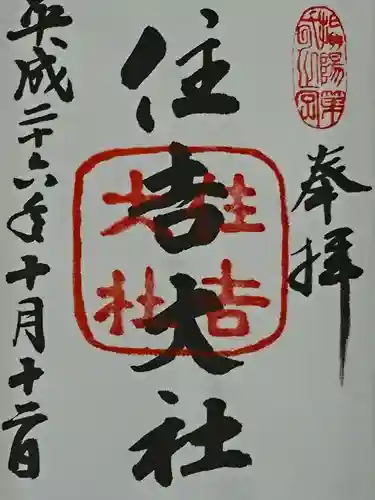 奉拝
住吉大社
住吉
大社
平成二十六年十月十二日